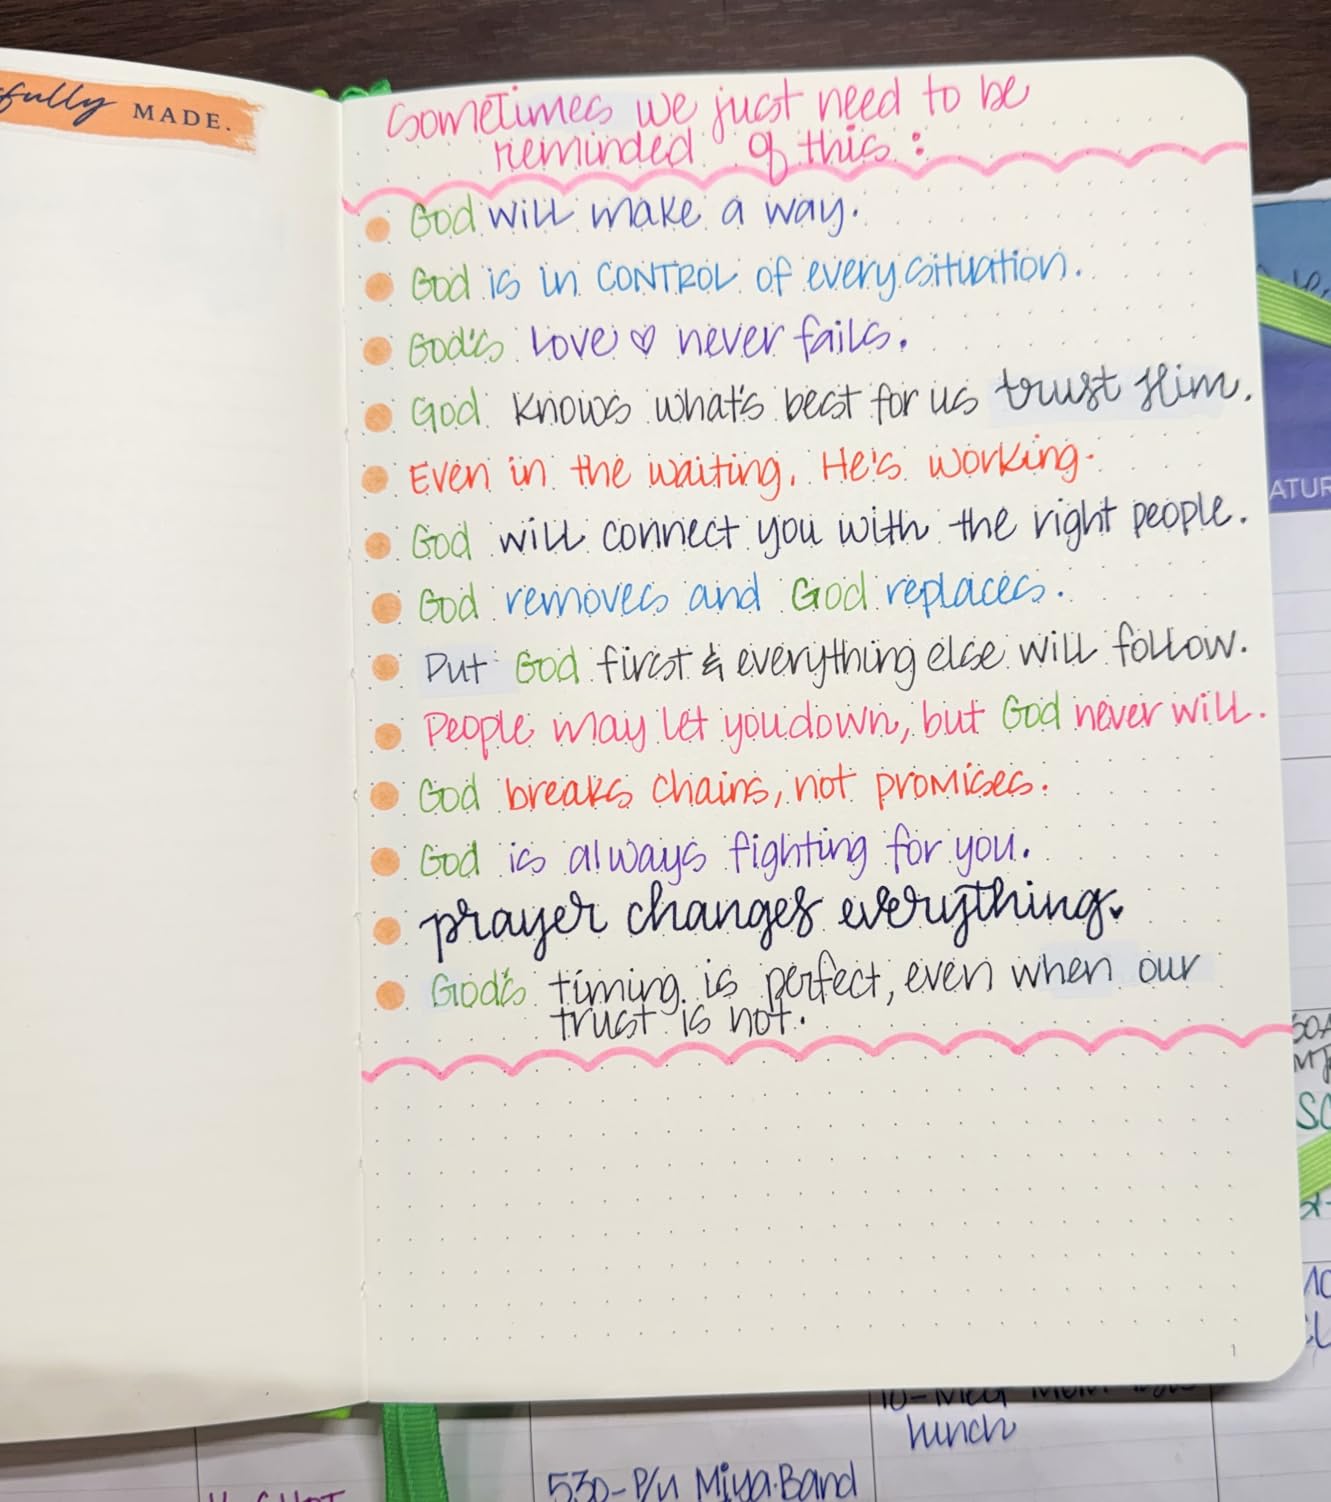 fully MADE.
Sometimes we just need to be
reminded of this:
God will make a way.
God is in CONTROL of every situation.
God's Love ♡ never fails.
God knows what's best for us trust Him.
Even in the waiting, He's working.
God will connect you with the right people.
God removes and God replaces.
Put God first & everything else will follow.
People may let you down, but God never will.
God breaks chains, not promises.
God is always fighting for you.
prayer changes everything.
God's timing is perfect, even when our
trust is not.
1
ATUR
SO
10
lunch
530-P/U Miya-Band